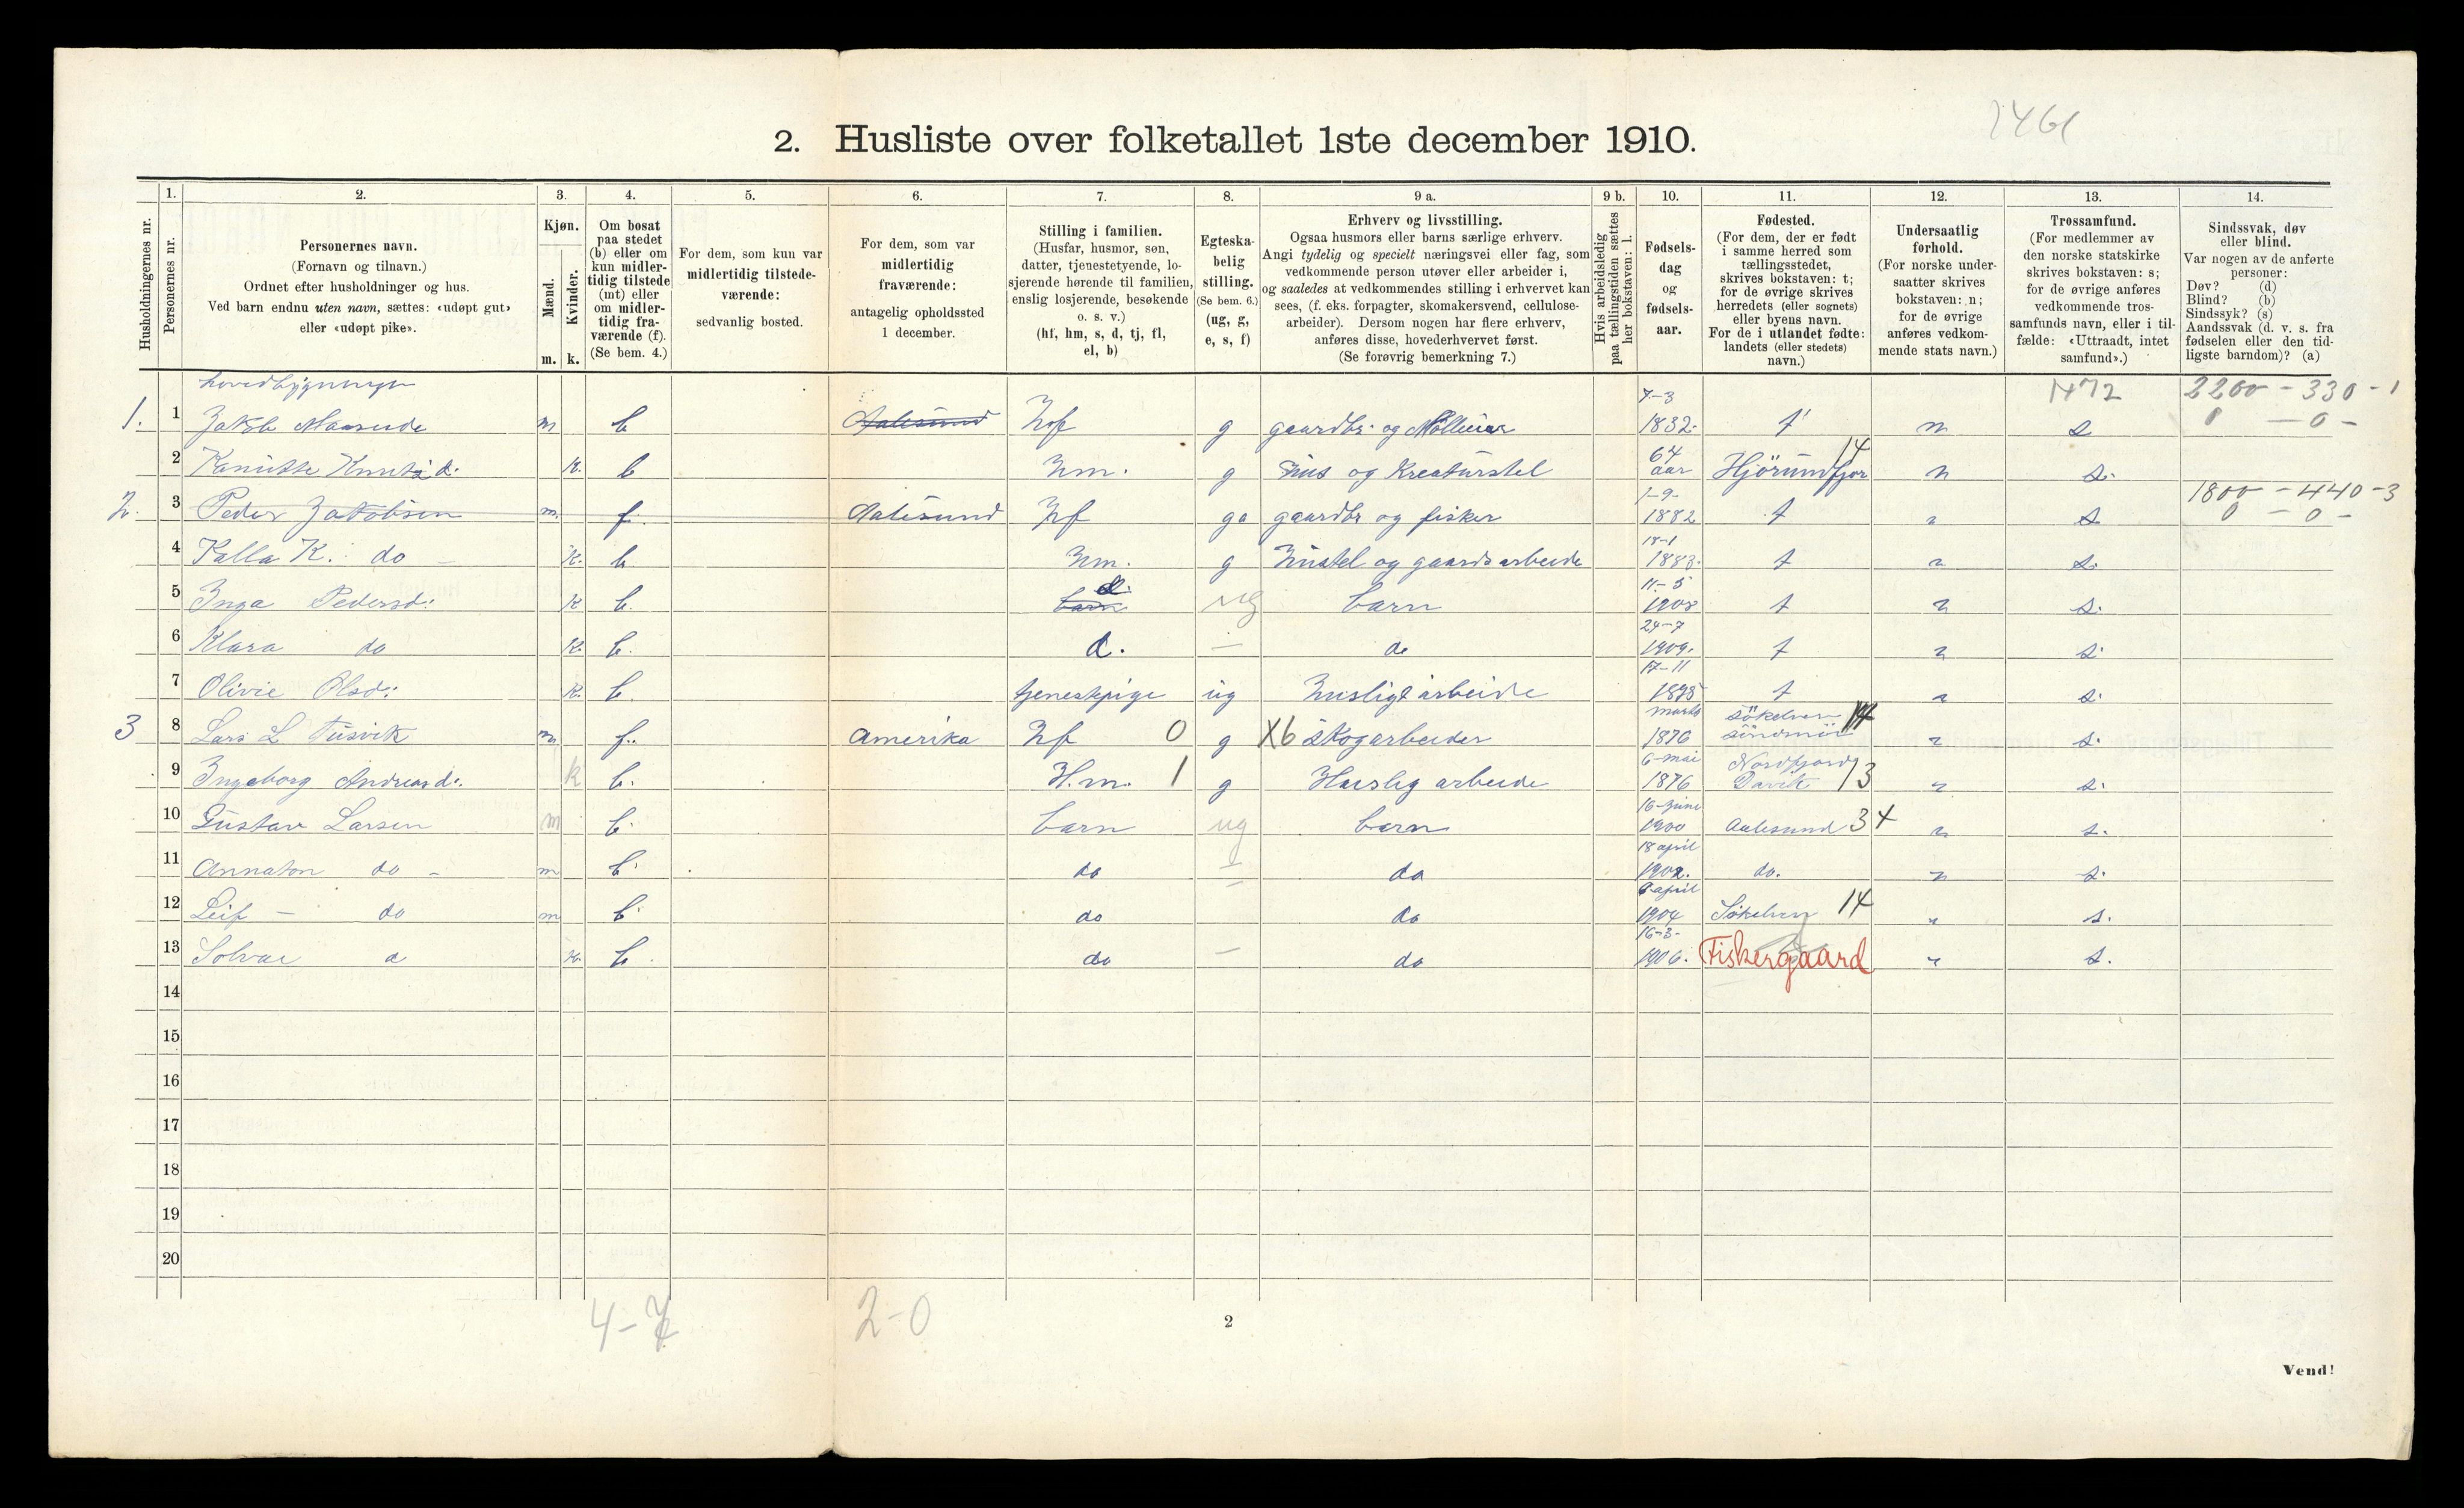 2. Husliste over folketallet 1ste december 1910.
Husholdningernes nr.
1. Personernes nr.
2. Personernes navn.
(Fornavn og tilnavn.)
Ordnet efter husholdninger og hus.
Ved barn endnu uten navn, sættes: «udøpt gut»
eller «udøpt pike».
3. Kjøn.
Mænd. m.
Kvinder. k.
4. Om bosat
paa stedet
(b) eller om
kun midler-
tidig tilstede
(mt) eller
om midler-
tidig fra-
værende (f).
(Se bem. 4.)
5. For dem, som kun var
midlertidig tilstede-
værende:
sedvanlig bosted.
6. For dem, som var
midlertidig
fraværende:
antagelig opholdssted
1 december.
7. Stilling i familien.
(Husfar, husmor, søn,
datter, tjenestetyende, lo-
sjerende hørende til familien,
enslig losjerende, besøkende
o. s. v.)
(hf, hm, s, d, tj, fl,
el, b)
8. Egteska-
belig
stilling.
(Se bem. 6.)
(ug, g,
e, s, f)
9 a. Erhverv og livsstilling.
Ogsaa husmors eller barns særlige erhverv.
Angi tydelig og specielt næringsvei eller fag, som
vedkommende person utøver eller arbeider i,
og saaledes at vedkommendes stilling i erhvervet kan
sees, (f. eks. forpagter, skomakersvend, cellulose-
arbeider). Dersom nogen har flere erhverv,
anføres disse, hovederhvervet først.
(Se forøvrig bemerkning 7.)
9 b. Hvis arbeidsledig
paa tællingstiden sættes
her bokstaven: l.
10. Fødsels-
dag
og
fødsels-
aar.
11. Fødested.
(For dem, der er født
i samme herred som
tællingsstedet,
skrives bokstaven: t;
for de øvrige skrives
herredets (eller sognets)
eller byens navn.
For de i utlandet fødte:
landets (eller stedets)
navn.)
12. Undersaatlig
forhold.
(For norske under-
saatter skrives
bokstaven: n;
for de øvrige
anføres vedkom-
mende stats navn.)
13. Trossamfund.
(For medlemmer av
den norske statskirke
skrives bokstaven: s;
for de øvrige anføres
vedkommende tros-
samfunds navn, eller i til-
fælde: «Uttraadt, intet
samfund».)
14. Sindssvak, døv
eller blind.
Var nogen av de anførte
personer:
Døv? (d)
Blind? (b)
Sindssyk? (s)
Aandssvak (d. v. s. fra
fødselen eller den tid-
ligste barndom)? (a)
hovedbygningen 2200 - 330 - 1
1. 1 Jakob m b Aalesund Hf g gaardbr. og 7-3 1832 t n s 0 - 0 -
2 Knutsd. k. b Hm. g Hus og Kreaturstel 64 aar Hjörundfjor 14 n s.
2. 3 Peder Jakobsen m. f. Aalesund Hf ga gaardbr og fisker 1-9- 1882 t n s 1800 - 440 - 3 0 - 0 -
4 Kalla K. do k. b Hm. g Hustel og gaardsarbeide 18-1 1883 t n s.
5 Inga Pedersd: k b. barn d. ug barn 11-5 1908 t n s.
6 Klara do k. b. d. — do 24-7 1909. t n s.
7 Olivie Olsd: k. b. tjenestpige ug Husligt arbeide 17-11 t n s.
3 8 Lars L Tusvik m f. Amerika Hf 0 g X6 Skogarbeider marts 1876 Sökelven söndmör 14 n s.
9 Ingeborg Andreasd: k b. H.m. 1 g Huslig arbeide 6-mai 1876 Nordfjord Davik 13 n s.
10 Gustav Larsen m b. barn ug barn 16-Juni 1900 Aalesund 34 n s.
11 Annaton do - m b. do — do 18 april 1902. do. n s.
12 Leif - do m b. do — do april 1904 Sökelven 14 n s.
13 Solvar d k. b. do — do 16-3- 1906. Fiskergaard n s.
14
15
16
17
18
19
20
4-7 2-0
2
Vend!